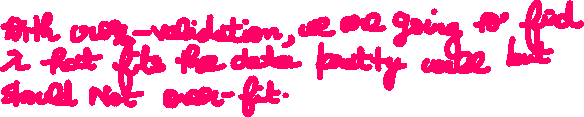 with cross-validation, we are going to find
λ that fits the data pretty well but
should not over-fit.